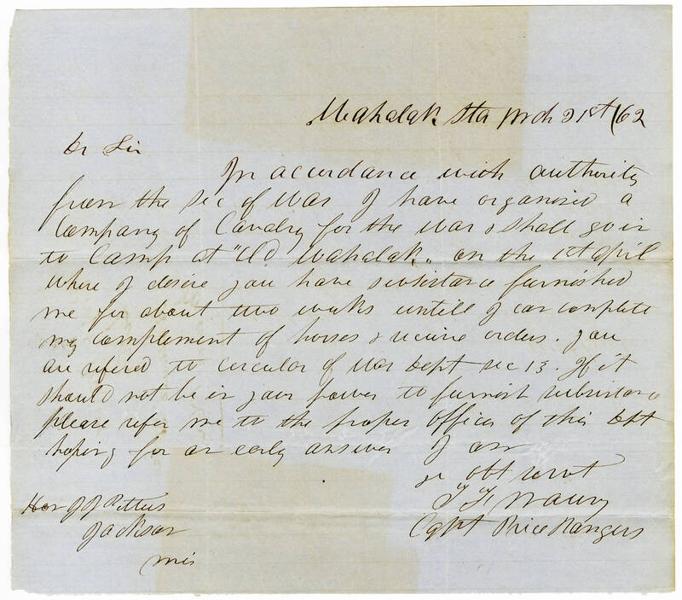 Wahalak Sta Mch 21st/62
Dr Sir
In accordance with authority
from the Sec of War I have organised a
Company of Cavalry for the War & shall go in
to Camp at "Old Wahalak" on the 1st April
where I desire you have subsistance furnished
me for about two weeks untill I can complete
my complement of horses & recieve orders. you
are refered to circular of War Dept Sec 13. If it
should not be in your power to furnish subsistance
please refer me to the proper officer of this Dpt
hoping for an early answer I am
yr obt servt
T F
Capt Price Rangers
Hon J J Pettus
Jackson
Mis